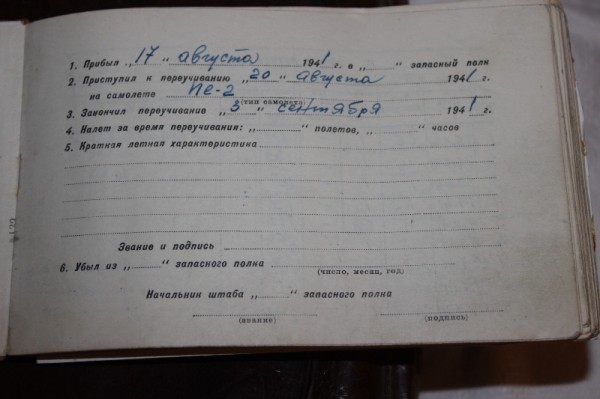 1. Прибыл „17 “ августа 1941 г. в „ “ запасный полк
2. Приступил к переучиванию „20 “ августа 1941 г.
на самолете Пе-2
(тип самолета)
3. Закончил переучивание „3 “ сентября 1941 г.
4. Налет за время переучивания: „ “ полетов, „ “ часов
5. Краткая летная характеристика
Звание и подпись
6. Убыл из „ “ запасного полка
(число, месяц, год)
Начальник штаба „ “ запасного полка
(звание) (подпись)